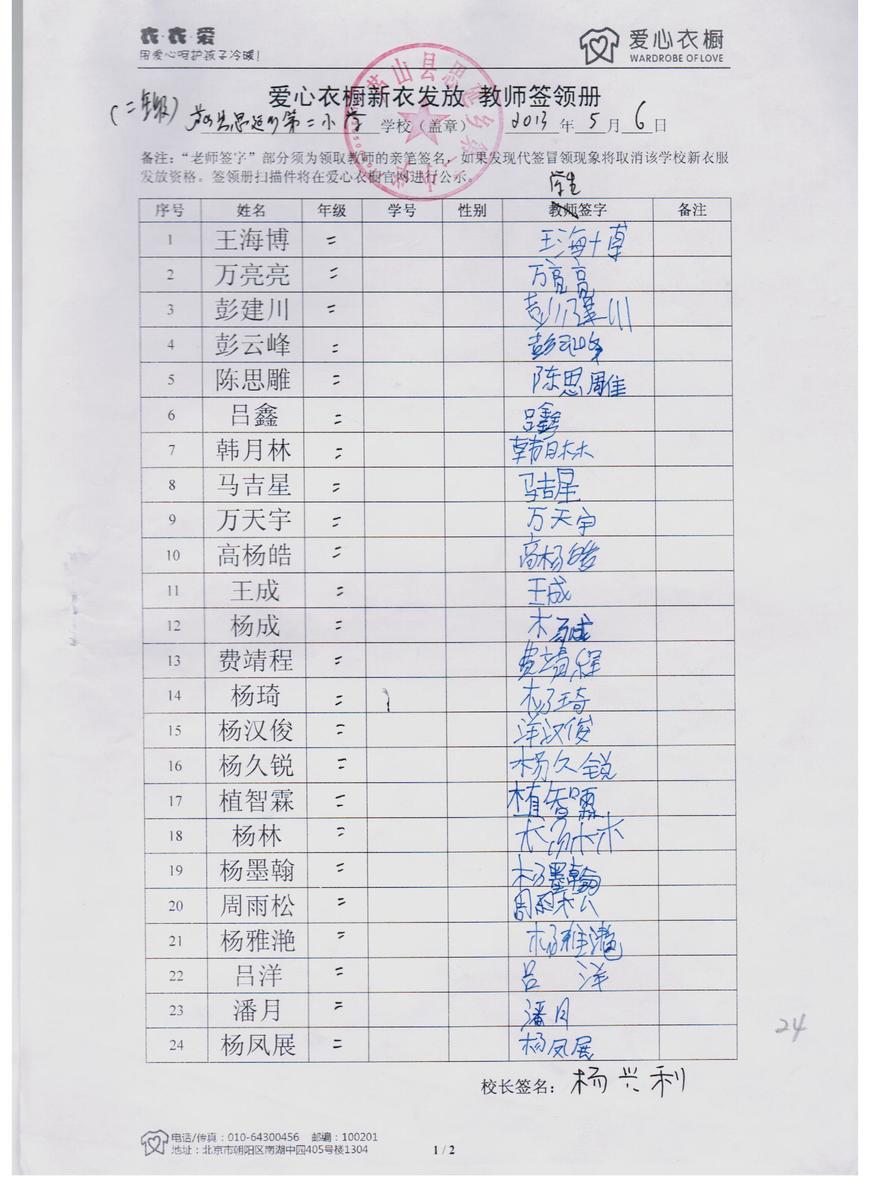 衣·衣·爱
用爱心呵护孩子冷暖!
爱心衣橱
WARDROBE OF LOVE
爱心衣橱新衣发放 教师签领册
(二年级) 县思延乡第二小学 学校(盖章) 2013 年 5 月 6 日
备注:“老师签字”部分须为领取教师的亲笔签名,如果发现代签冒领现象将取消该学校新衣服
发放资格。签领册扫描件将在爱心衣橱官网进行公示。
学生
序号 姓名 年级 学号 性别 教师签字 备注
1 王海博 二 王海博
2 万亮亮 二 万亮亮
3 彭建川 二 彭建川
4 彭云峰 二 彭云峰
5 陈思雕 二 陈思雕
6 吕鑫 二 吕鑫
7 韩月林 二 韩月林
8 马吉星 二 马吉星
9 万天宇 二 万天宇
10 高杨皓 二 高杨皓
11 王成 二 王成
12 杨成 二 杨成
13 费靖程 二 费靖程
14 杨琦 二 杨琦
15 杨汉俊 二 洋汉俊
16 杨久锐 二 杨久锐
17 植智霖 二 植智霖
18 杨林 二 杨林
19 杨墨翰 二 杨墨翰
20 周雨松 二 周雨松
21 杨雅滟 二 杨雅滟
22 吕洋 二 吕 洋
23 潘月 二 潘月
24 杨凤展 二 杨凤展
24
校长签名: 杨兴利
电话/传真:010-64300456 邮编:100201
地址:北京市朝阳区南湖中园405号楼1304
1 / 2